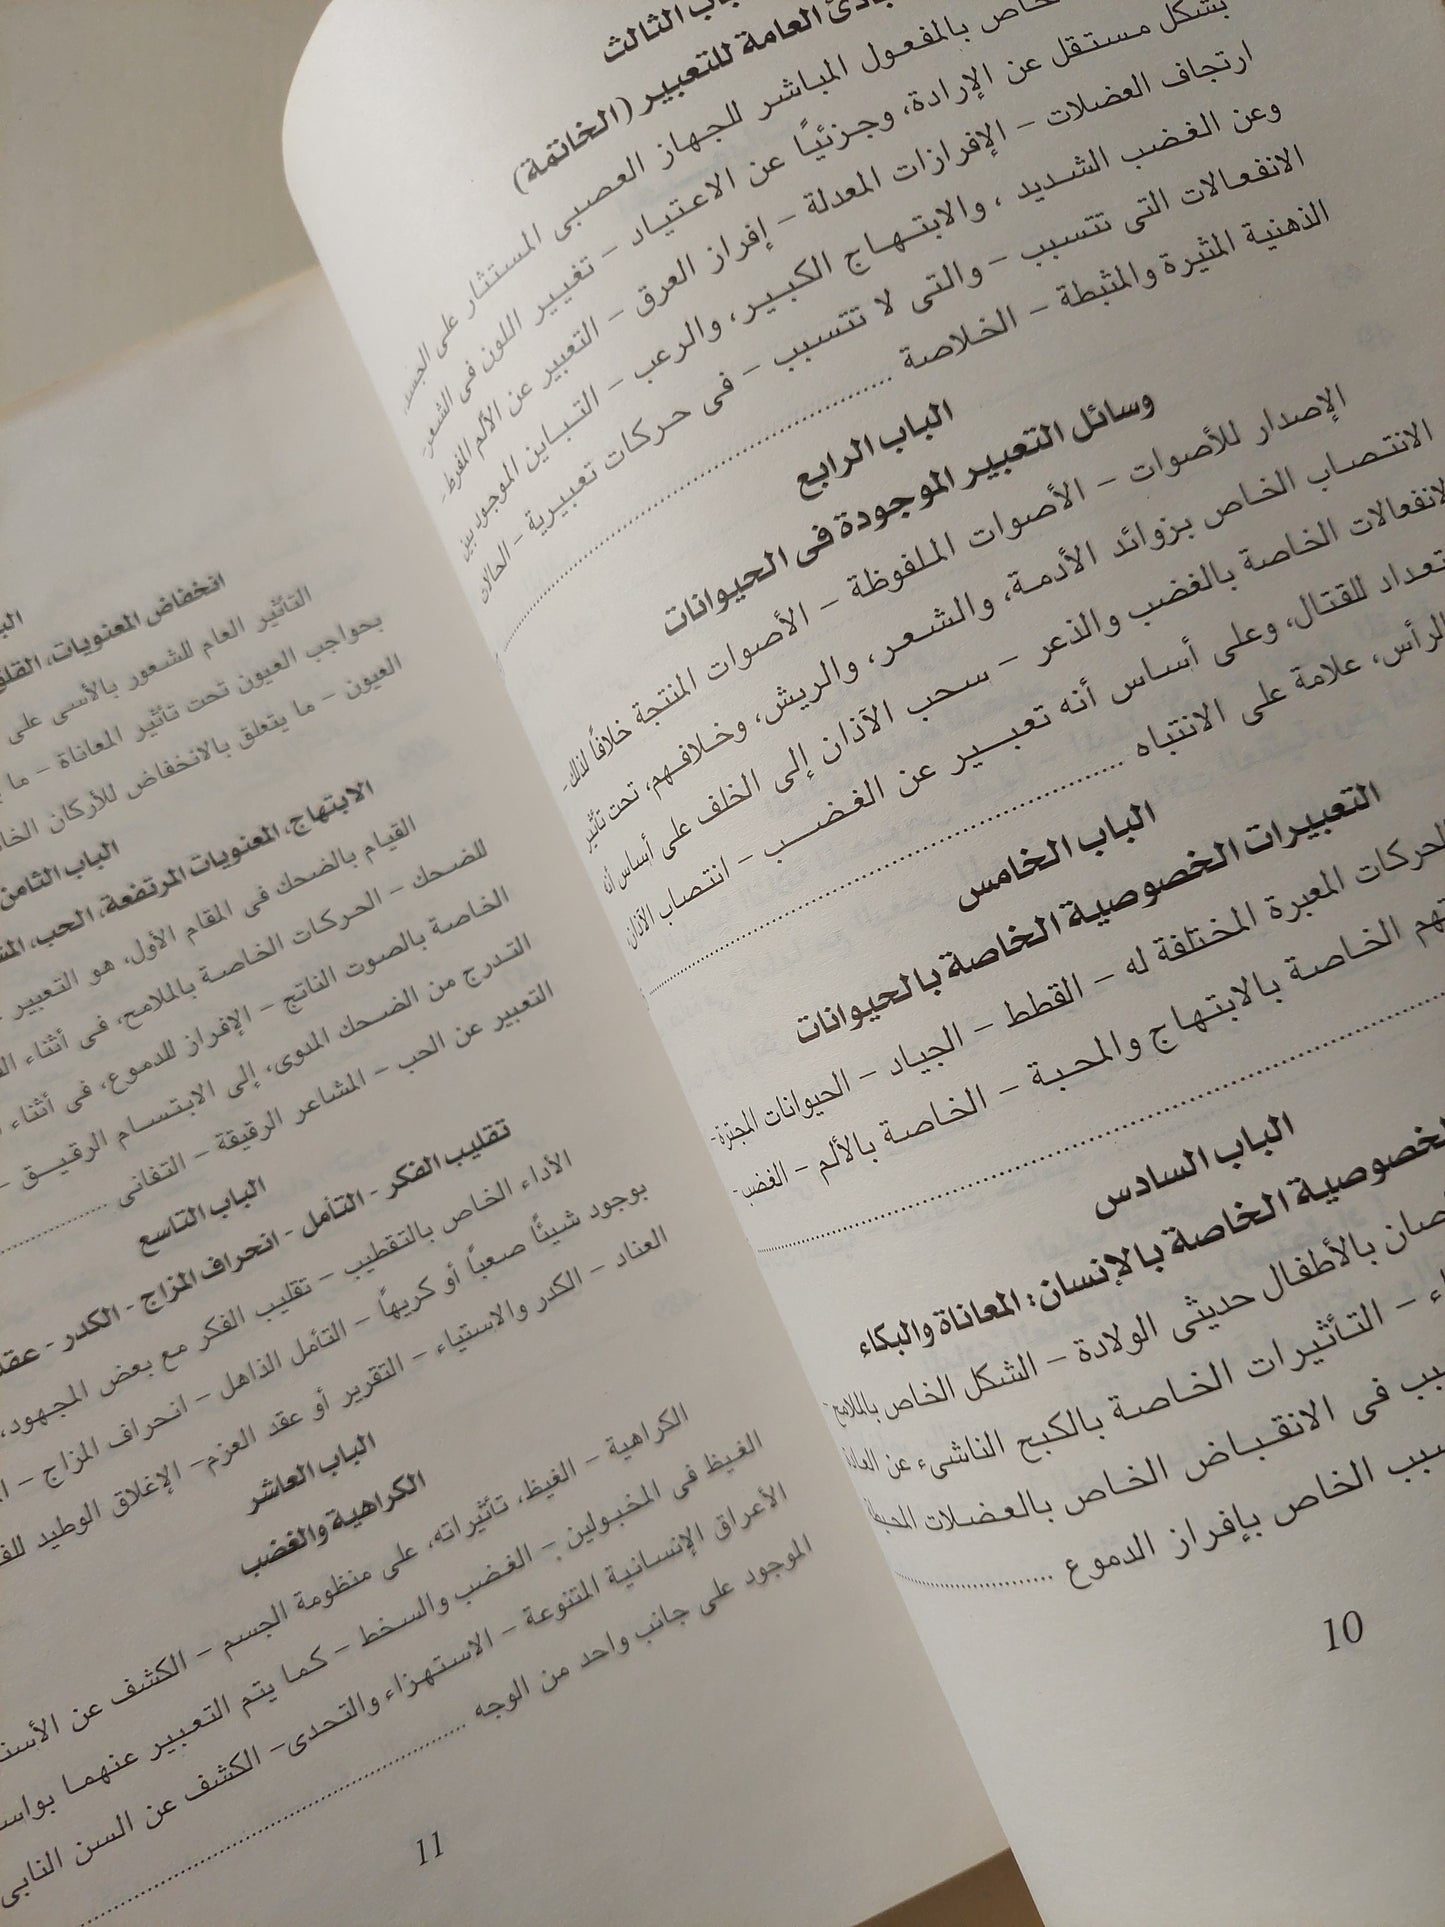 باب الثالث
بادئ العامة للتعبير (الخاتمة)
خاص بالمفعول المباشر للجهاز العصبى المستثار على الجسد،
بشكل مستقل عن الإرادة، وجزئيًا عن الاعتياد – تغيير اللون فى الشعر –
ارتجاف العضلات – الإفرازات المعدلة – إفراز العرق – التعبير عن الألم المفرط –
وعن الغضب الشديد ، والابتهاج الكبير، والرعب – التباين الموجود بين
الانفعالات التى تتسبب – والتى لا تتسبب – فى حركات تعبيرية – الحالات
الذهنية المثيرة والمثبطة – الخلاصة
الباب الرابع
وسائل التعبير الموجودة فى الحيوانات
الإصدار للأصوات – الأصوات الملفوظة – الأصوات المنتجة خلافًا لذلك –
الانتصاب الخاص بزوائد الأدمة، والشعر، والريش، وخلافهم، تحت تأثير
الانفعالات الخاصة بالغضب والذعر – سحب الآذان إلى الخلف على أساس أنه
تعداد للقتال، وعلى أساس أنه تعبير عن الغضب – انتصاب الآذان،
الرأس، علامة على الانتباه
الباب الخامس
التعبيرات الخصوصية الخاصة بالحيوانات
الحركات المعبرة المختلفة له – القطط – الجياد – الحيوانات المجترة –
تهم الخاصة بالابتهاج والمحبة – الخاصة بالألم – الغضب –
الباب السادس
الخصوصية الخاصة بالإنسان: المعاناة والبكاء
صان بالأطفال حديثى الولادة – الشكل الخاص بالملامح –
اء – التأثيرات الخاصة بالكبح الناشىء عن العادة
سبب فى الانقباض الخاص بالعضلات المحيطة
سبب الخاص بإفراز الدموع
10
انخفاض المعنويات، القلق
التأثير العام للشعور بالأسى على
بحواجب العيون تحت تأثير المعاناة – ما
العيون – ما يتعلق بالانخفاض للأركان الخا
الباب الثامن
الابتهاج، المعنويات المرتفعة، الحب، المش
القيام بالضحك فى المقام الأول، هو التعبير
للضحك – الحركات الخاصة بالملامح، فى أثناء
الخاصة بالصوت الناتج – الإفراز للدموع، فى أثناء
التدرج من الضحك المدوى، إلى الابتسام الرقيق –
التعبير عن الحب – المشاعر الرقيقة – التفانى
الباب التاسع
تقليب الفكر - التأمل - انحراف المزاج - الكدر - عقد
الأداء الخاص بالتقطيب – تقليب الفكر مع بعض المجهود،
بوجود شيئًا صعبًا أو كريهًا – التأمل الذاهل – انحراف المزاج –
العناد – الكدر والاستياء – التقرير أو عقد العزم– الإغلاق الوطيد للف
الباب العاشر
الكراهية والغضب
الكراهية – الغيظ، تأثيراته، على منظومة الجسم – الكشف عن الأسن
الغيظ فى المخبولين – الغضب والسخط – كما يتم التعبير عنهما بواس
الأعراق الإنسانية المتنوعة – الاستهزاء والتحدى– الكشف عن السن النابى
الموجود على جانب واحد من الوجه
11